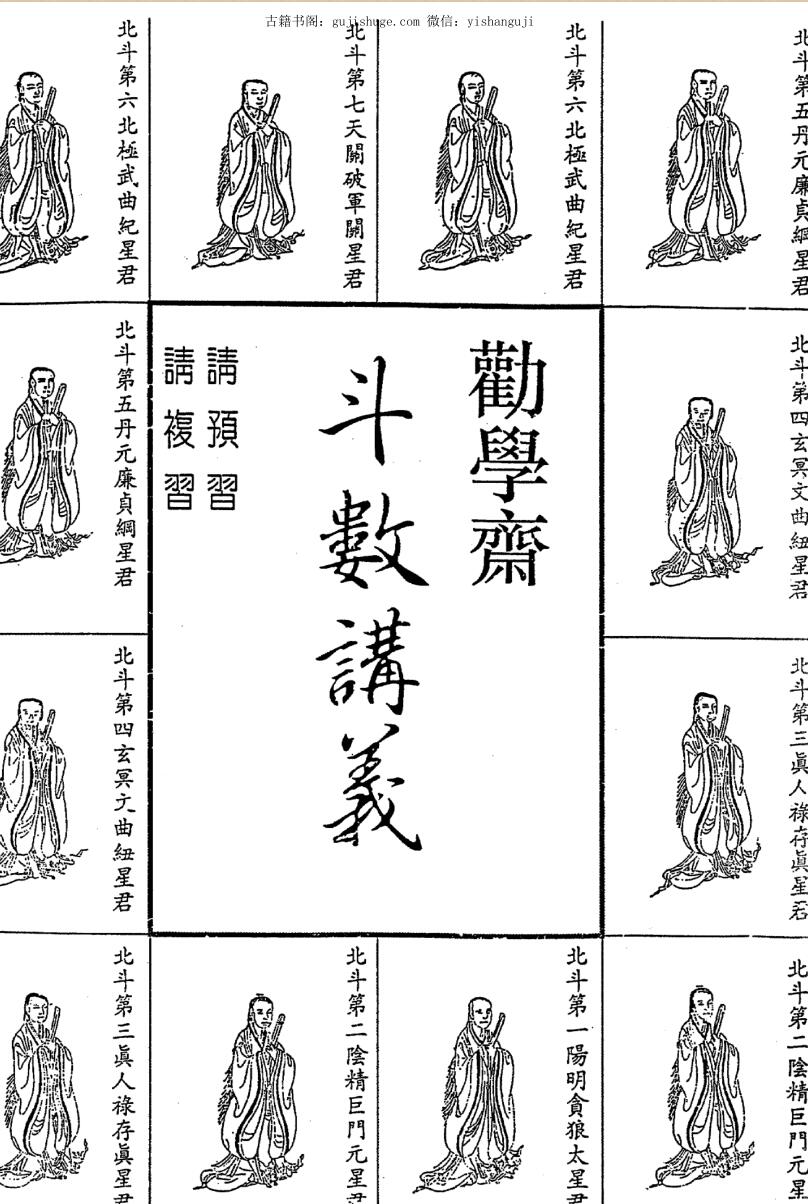 古籍书阁：gujishuge.com 微信：yishanguji
北斗第五丹元廉貞綱星君
北斗第六北極武曲紀星君
北斗第七天關破軍關星君
北斗第六北極武曲紀星君
勸學齋
斗數講義
請預習
請複習
北斗第四玄冥文曲紐星君
北斗第五丹元廉貞綱星君
北斗第三眞人祿存眞星君
北斗第四玄冥文曲紐星君
北斗第二陰精巨門元星
北斗第一陽明貪狼太星君
北斗第二陰精巨門元星君
北斗第三眞人祿存眞星君